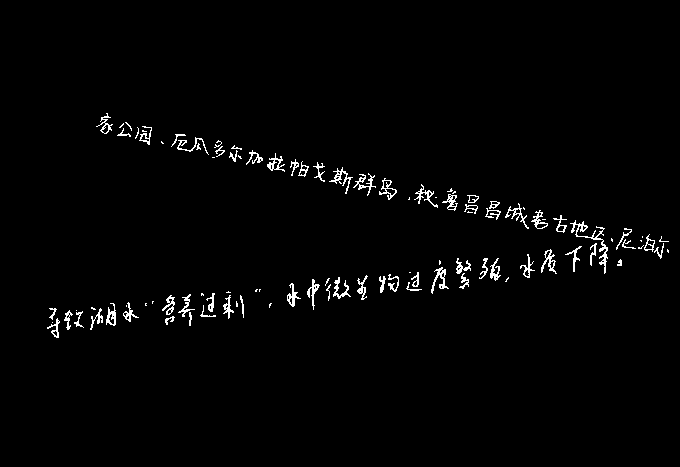 家公园、厄瓜多尔加拉帕戈斯群岛、秘鲁昌昌城考古地区、尼泊尔
导致湖水“营养过剩”，水中微生物过度繁殖，水质下降。